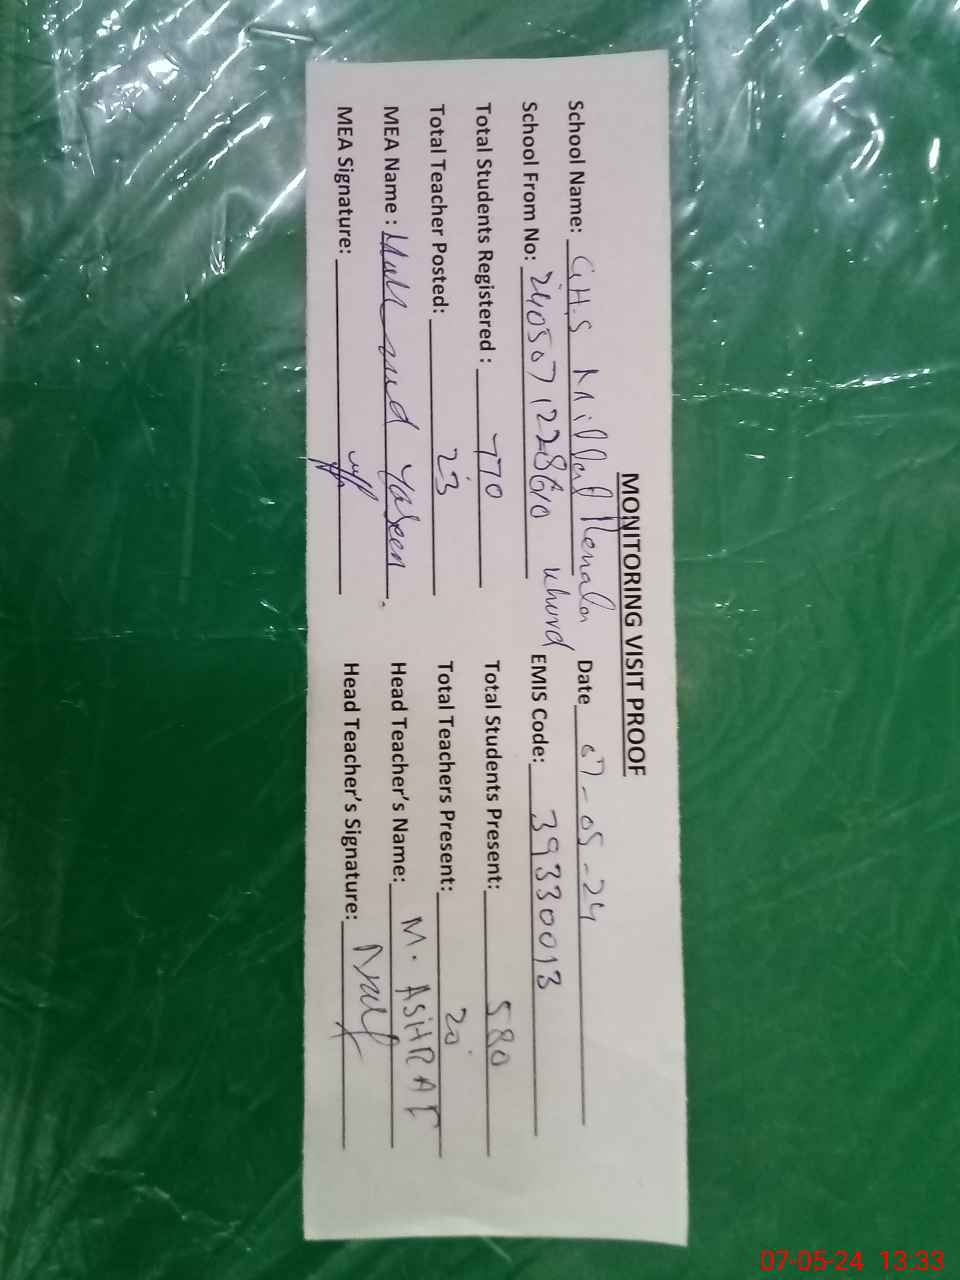 MONITORING VISIT PROOF
School Name: G.H.S Millat Renala Khurd Date 07-05-24
School From No: 240507122860 EMIS Code: 39330013
Total Students Registered : 770 Total Students Present: 580
Total Teacher Posted: 23 Total Teachers Present: 20
MEA Name : Yaseen Head Teacher's Name: M. ASHRAF
MEA Signature: Head Teacher's Signature:
07-05-24 13:33